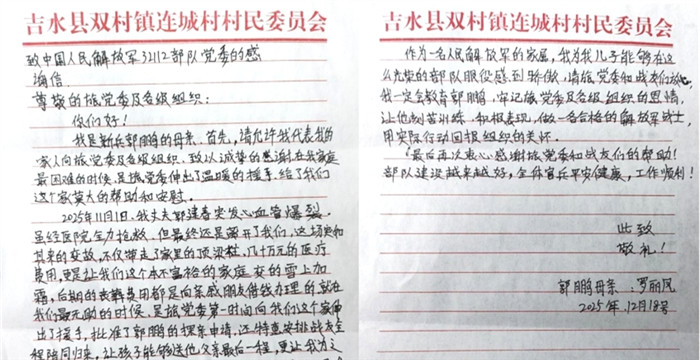 吉水县双村镇连城村村民委员会
致中国人民解放军32112部队党委的感
谢信
尊敬的旅党委及各级组织：
你们好！
我是新兵郭鹏的母亲。首先，请允许我代表我的
家人向旅党委及各级组织，致以诚挚的感谢。在我家庭
最困难的时候，是旅党委伸出了温暖的援手，给了我们
这个家莫大的帮助和安慰。
2025年11月1日，我丈夫郭建春突发心血管爆裂，
虽经医院全力抢救，但最终还是离开了我们，这场突如
其来的变故，不仅带走了家里的顶梁柱，几十万元的医疗
费用，更是让我们这个本不富裕的家庭变的雪上加
霜，后期的丧葬费用都是向亲戚朋友借钱办理的，就在
我们最无助的时候，是旅党委第一时间向我们这个家伸
出了援手，批准了郭鹏的探亲申请，还特意安排战友全
程陪同归来，让孩子能够送他父亲最后一程，更让我为之
吉水县双村镇连城村村民委员会
作为一名人民解放军的家属，我为我儿子能够在这
么光荣的部队服役感到骄傲，请旅党委和战友们放心
我一定会教育郭鹏，牢记旅党委及各级组织的恩情，
让他刻苦训练，积极表现，做一名合格的解放军战士，
用实际行动回报组织的关怀。
最后再次衷心感谢旅党委和战友们的帮助！
部队建设越来越好，全体官兵平安健康，工作顺利！
此致
敬礼！
郭鹏母亲：罗丽凤
2025年12月18号